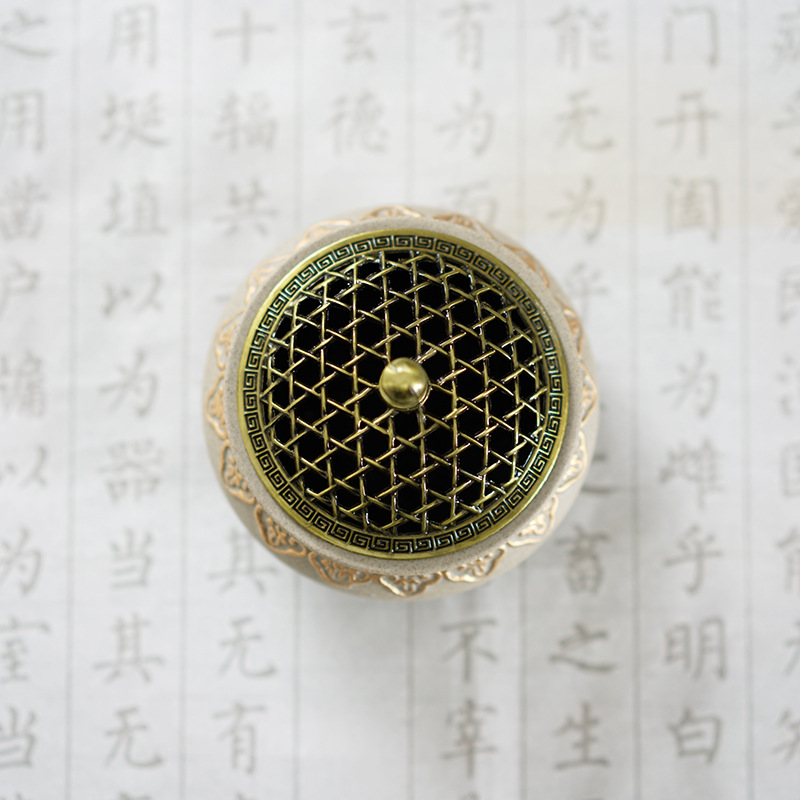 乎爱民治国能无知
门开阖能为雌乎明白
能无为乎之畜之生
有为而不宰
玄德
十辐共其无有
用埏埴以为器当其无
之用凿户牖以为室当